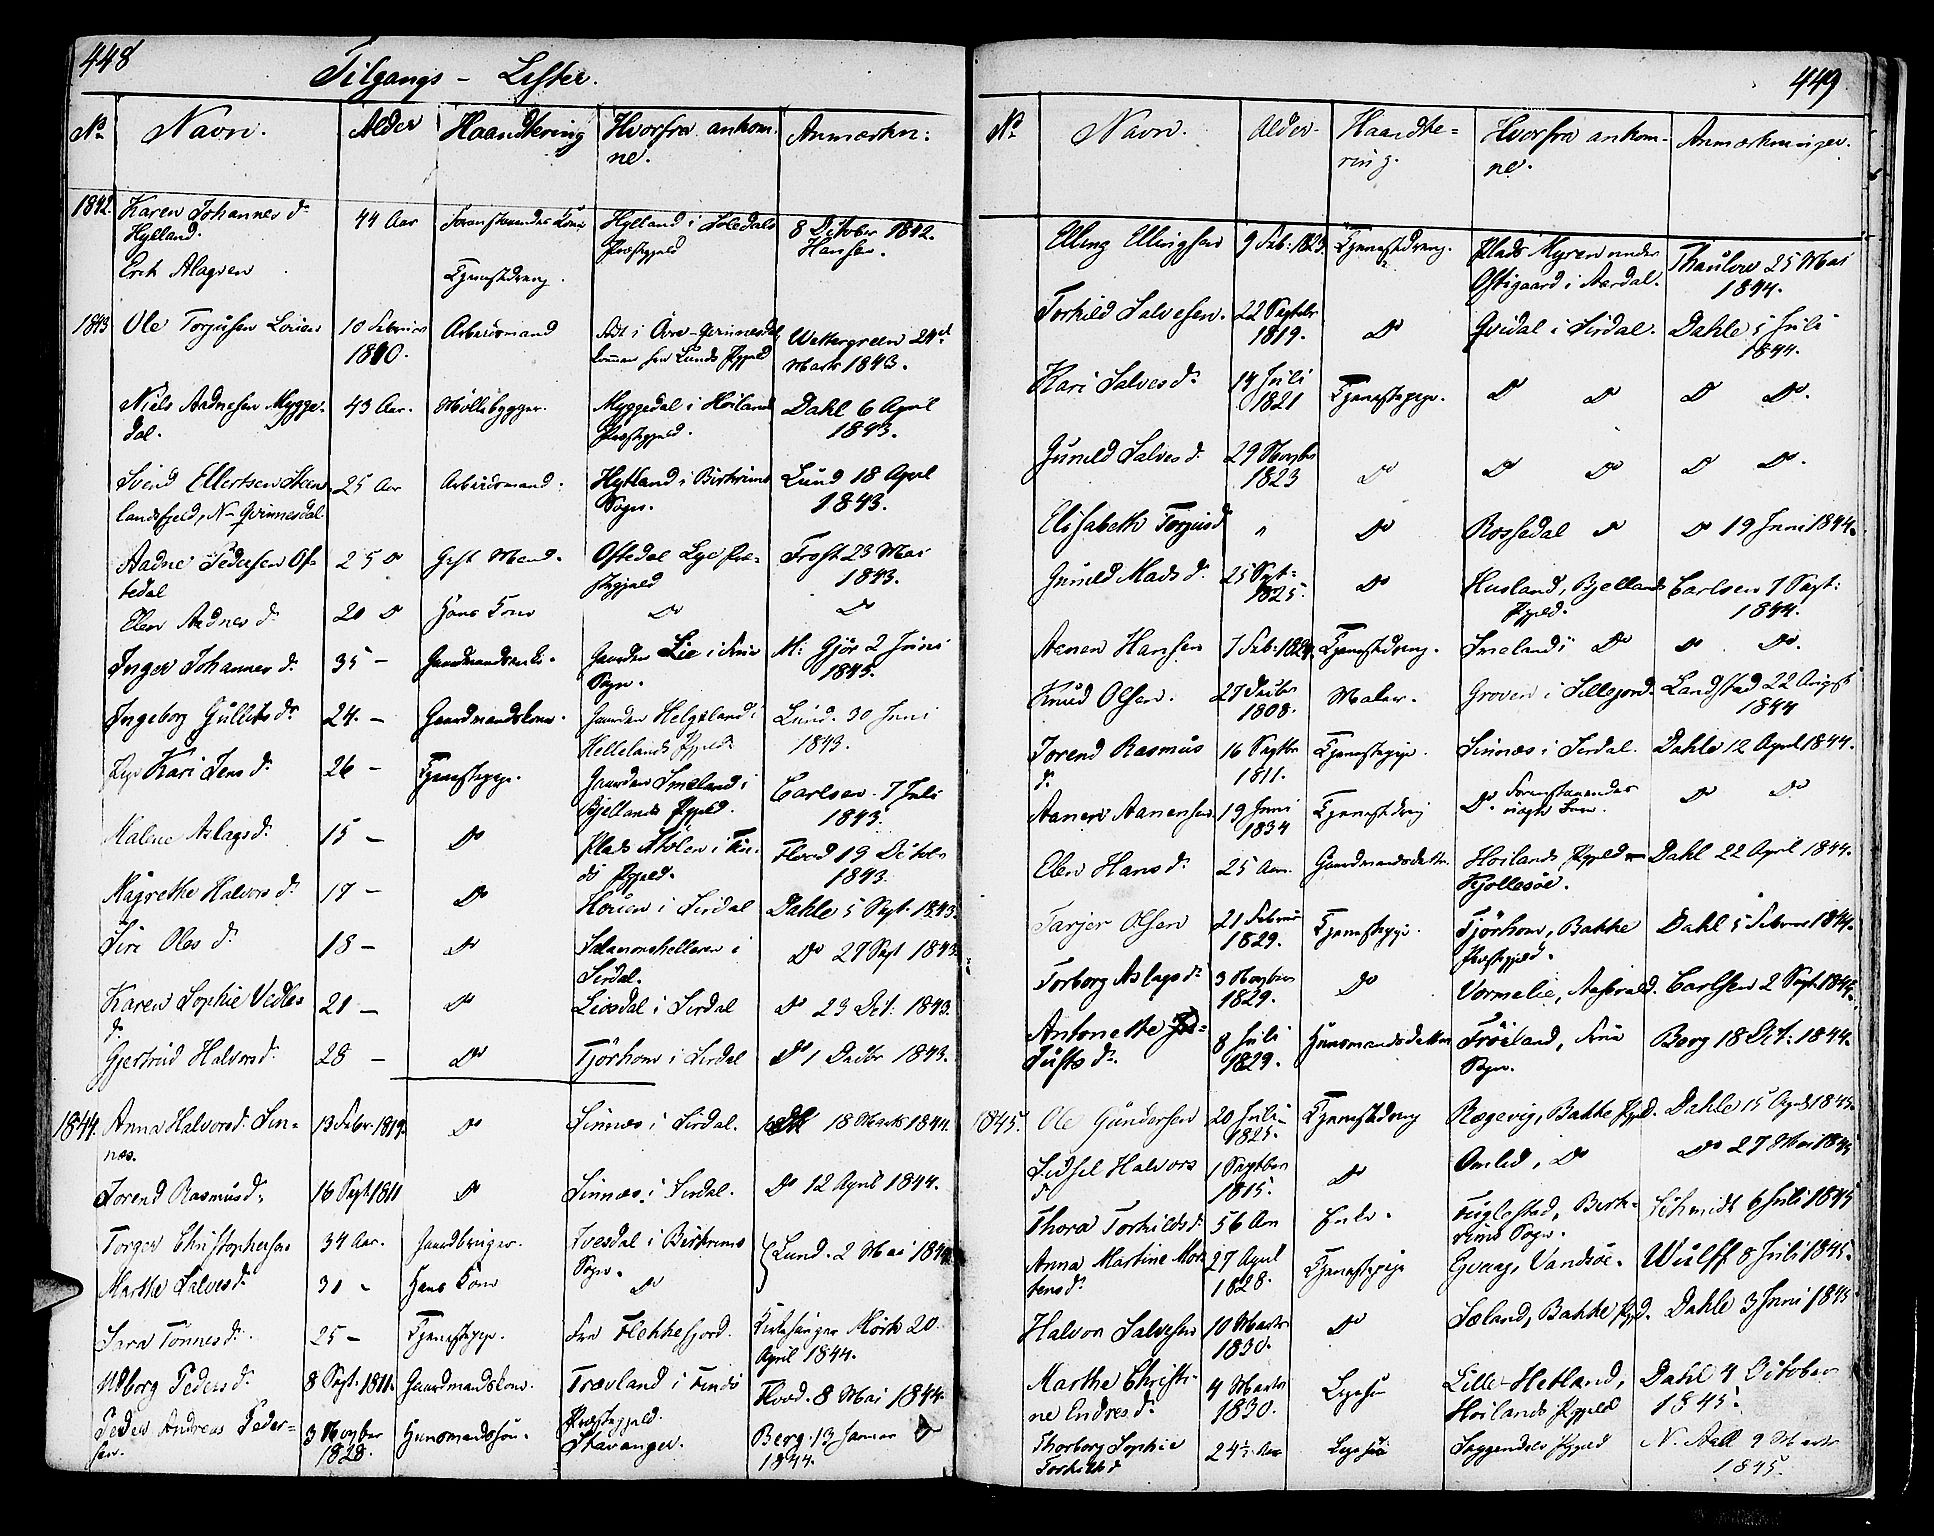 448
Tilgangs - Lister.
No Navn. Alder Haandtering Hvorfra ankomne. Anmærkn:
1842 Karen Johannesd. Hylland. 44 Aar Foranstaaendes Kone Hylland i Præstegjeld 8 October 1842. Hansen.
Erik Tjenestdreng.
1843 Ole Torjusen 10 Februar 1810. Arbeidsmand Født i Øvre-Qvinnesdal, kommer fra Lunds Pgjeld Wettergreen 24de Marts 1843.
Niels Aadnesen Myggedal. 43 Aar. Møllebygger. Myggedal i Høilands Præstegjeld. Dahl 6 April 1843.
Svend Ellertsen landsfjeld, N- Qvinnesdal 25 Aar Arbeidsmand. Hytland i Birkrims Sogn. Lund 18 April 1843.
Aadne Pedersen Oftedal 25 Do Gift Mand. Oftedal Lye Præstegjeld Frost 23 Mai 1843.
Elen Aadnesd. 20 Do Hans Kone Do Do
Inger Johannesd. 35 - Gaarden Lie i Sogn. M: Gjör 2 Juni 1843.
Ingeborg Gullikd. 24. - Gaardmandskone. Gaarden Helgeland i Hellelands Pgjeld Lund. 30 Juni 1843.
Kari Jensd. 26 - Tjenestepige. Gaarden Smeland i Bjellands Pgjeld. Carlsen. 7 Juli 1843.
Malene Aslagsd. 15 - Do Plads Stölen i Pgjeld. Floed 19 October 1843.
Magrethe Halvorsd. 17 - Do i Sirdal Dahle 5 Sept. 1843.
Siri Olesd. 18 - Do Salamonshelleren i Sirdal. Do 27 Sept 1843.
Karen Sophie Vedlesd. 21 - Do Liosdal i Sirdal Do 23 Oct: 1843.
Gjertrud Halvorsd. 28 - Do Tjörhom i Sirdal Do 1 Decbr 1843.
1844. Anna Halvorsd. Sinnes. 13 Febr. 1819. Do Sinnæs i Sirdal. 18 Marts 1844.
Jorend Rasmusd. 16 Sept 1811 Do Sinnæs i Sirdal. Do 12 April 1844.
Torger Christophersen 34 Aar. Gaardbruger. Ivesdal i Birkrims Sogn. Lund. 2 Mai 1844.
Marthe Salvesd. 31 - Hans Kone Do
Sara Tönnesd. 25 - Tjenestepige. Fra Flekkefjord. Kirkesanger Mörk 20 April 1844.
Pedersd. 8 Sept. 1811. Gaardmandskone. Trævland i Præstegjeld. Floed. 8 Mai 1844.
Peder Andreas Pedersen. 3 Novber 1828. Huusmandssön. Stavanger. Berg. 13 Januar 1844.
449
No Navn. Alder. Haandtering. Hvorfra ankomne. Anmærkninger.
Elling Ellingsen 9 Feb: 1823 Tjenestdreng. Plads Myren under Østigaard i Aardal. Thaulow 25 Mai 1844.
Torkild Salvesen. 22 Septbr 1819. Do Qvidal i Sirdal. Dahle 5 Juli 1844.
Kari Salvesd. 14 Juli 1821 Tjenestepige. Do Do Do Do.
Guneld Salvesd. 29 Novbr 1823 Do Do Do Do Do.
Elisabeth Torjusd " Do Rossedal Do Do 19 Juni 1844.
Guneld Madsd. 25 Sept: 1825. Do Husland, Bjellands Pgjeld. Carlsen 7 Sept: 1844.
Aanen Hansen 7 Feb: 1824. Tjenestdreng. Smeland i Do Do Do.
Knud Olsen. 27 1808. Maler. Groven i Sillejord. Landstad 22 August 1844
Jorend Rasmusd. 16 Septbr 1811. Tjenestepige. Sinnæs i Sirdal. Dahle 12 April 1844.
Aanen Aanensen 19 Juni 1834 Tjenestdreng Do. Foranstaaendes uægte Søn. Do Do
Elen Hansd. 25 Aar. Gaardmandsdatter. Høilands Pgjeld Kjollesöe. Dahl 22 April 1844.
Tarjer Olsen 21 Februar 1829. Tjenestepige. Tjörhom, Bakke Præstegjeld. Dahl 5 Februar 1844.
Torborg Aslagsd. 3 Novber 1829. Do Vormelie, Aaserald. Carlsen 2 Sept. 1844.
Antonette Justsd. 8 Juli 1829. Huusmandsdatter Fröiland, Sogn. Berg 18 Oct: 1844.
1845. Ole Gundersen 20 Juli 1825. Tjenestdreng Rægevig, Bakke Pgjeld. Dahle 15 April 1845.
Sidsel Halvorsd 1 Septber 1815. Do Omlid, Do Do 27 Mai 1845
Thora Torkildsd. 56 Aar Enke. Fuglestad, Birkrims Sogn. Schmidt 6 Juli 1845
Anna Martine Mortensd. 27 April 1828. Tjenestepige Gvaag, Vandsöe. Wulff 8 Juli 1845.
Halvor Salvesen 10 Marts 1830. Do Sæland, Bakke Pgjd. Dahle 3 Juni 1845
Marthe Christine Endresd. 4 Marts 1830. Lille-Hetland, Høilands Pgjeld Dahl 4 October 1845.
Thorborg Sophie Torkildsd 24½ Aar Soggendals Pgjeld N. Aall 9 Marts 1845.